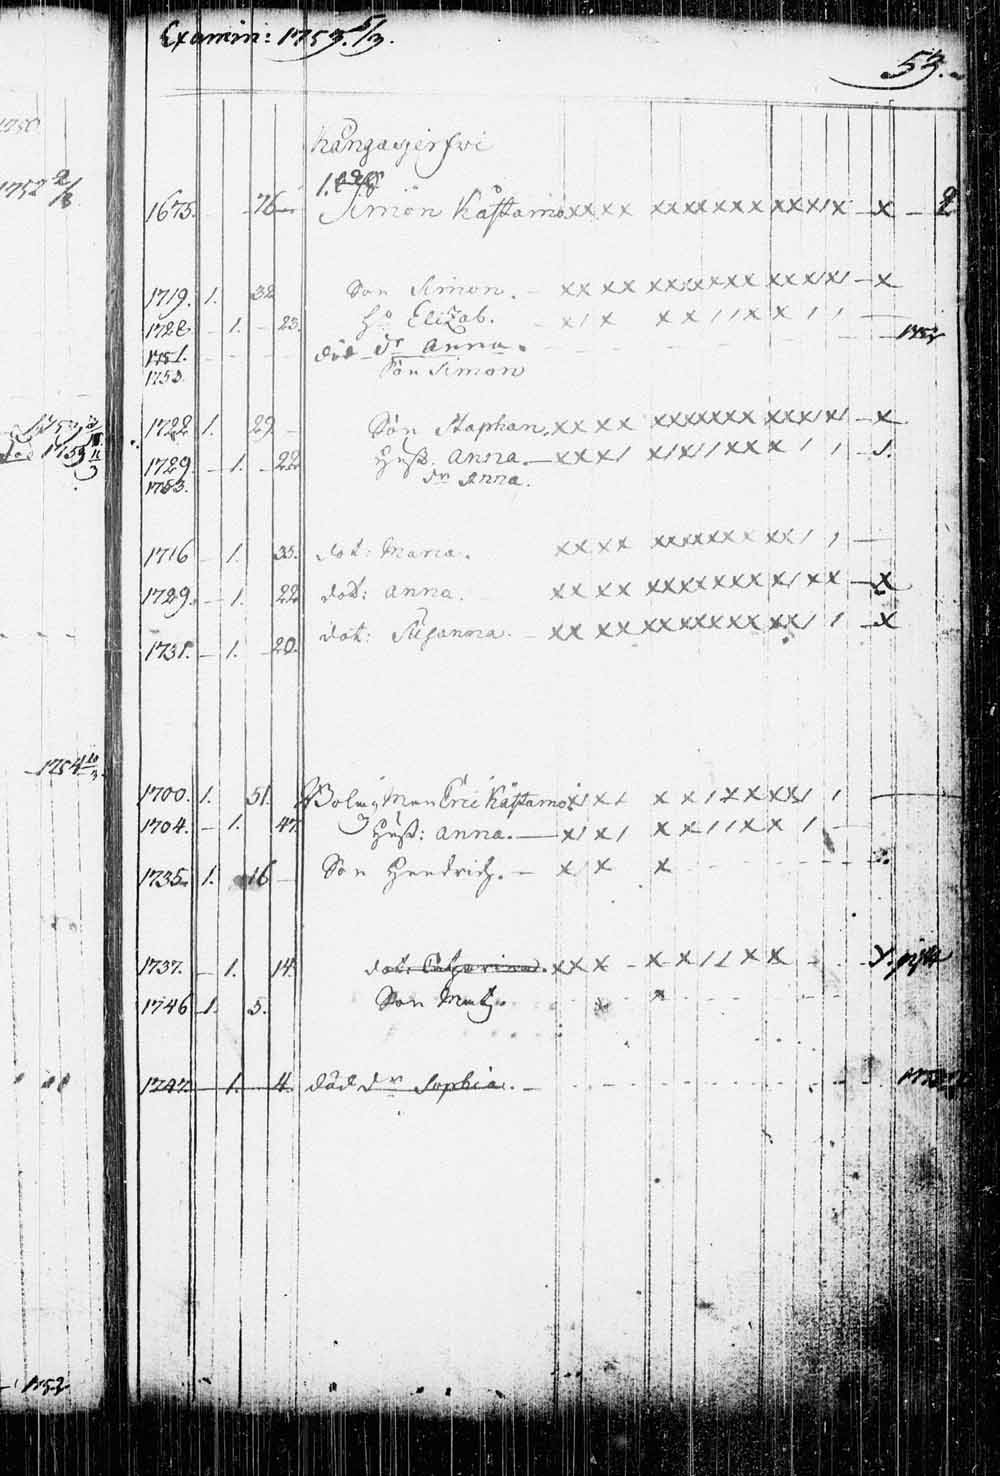 Examin: 1753 5/3.
53.
1750
Kångasjerfwi
1752 2/3
1.
1675. 76 Simon Kåstamo xx xx xxxxxxx xxxxx x 2
1719. 1. 32 Son Simon. xx xx xxxxxxx xxxxx x
1728 1. 23. Ho Elizab. x / x x x / / x x / /
1751. död dr Anna. 1752
1753. Son Simon
1722 1. 29. Son Staphan. xx xx xxxxxxx xxxxx x
1729 1. 22 Hust. Anna. xxx/ x/x//xxx / / /.
1753. dr Anna.
1716 1. 35. dot: Maria. xx xx xxxxxxx xx/ /
1729. 1. 22 dot: Anna. xx xx xxxxxxx x/ xx x
1731. 1. 20. dot: Susanna. xx xx xxxxxxx xx/ / x
1754 10/3
1700. 1. 51. Bolm Eric Kåstamo
1704. 1. 47. Hust: Anna. x/ x/ x x / / x x /
1735. 1. 16 Son Hendrich. x x x
1737. 1. 14. dot: Catharina. xxx x x / / x x
1746 1. 5. Son x
1747. 1. 4. död dr Sophia.
1752